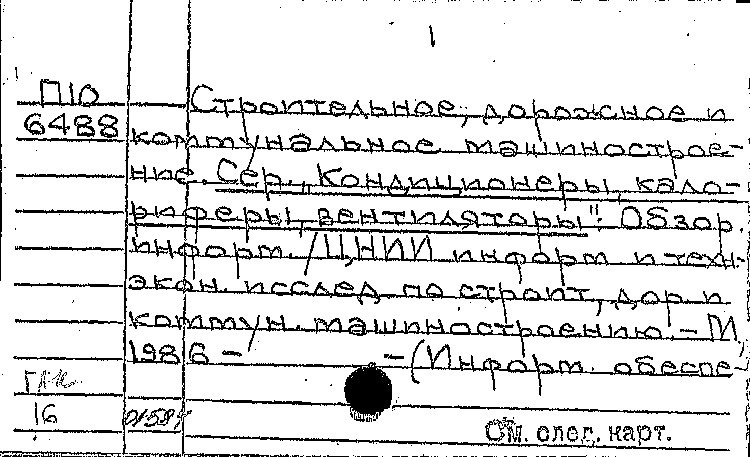 1
П10 Строительное, дорожное и
6488 коммунальное машинострое-
ние. Сер., Кондиционеры, кало-
риферы, вентиляторы": Обзор.
информ. /ЦНИИ информ и техн-
экон. исслед по строит, дор и
коммун. машиностроению. – М,
1986 – – (Информ. обеспе-
16
См. след. карт.